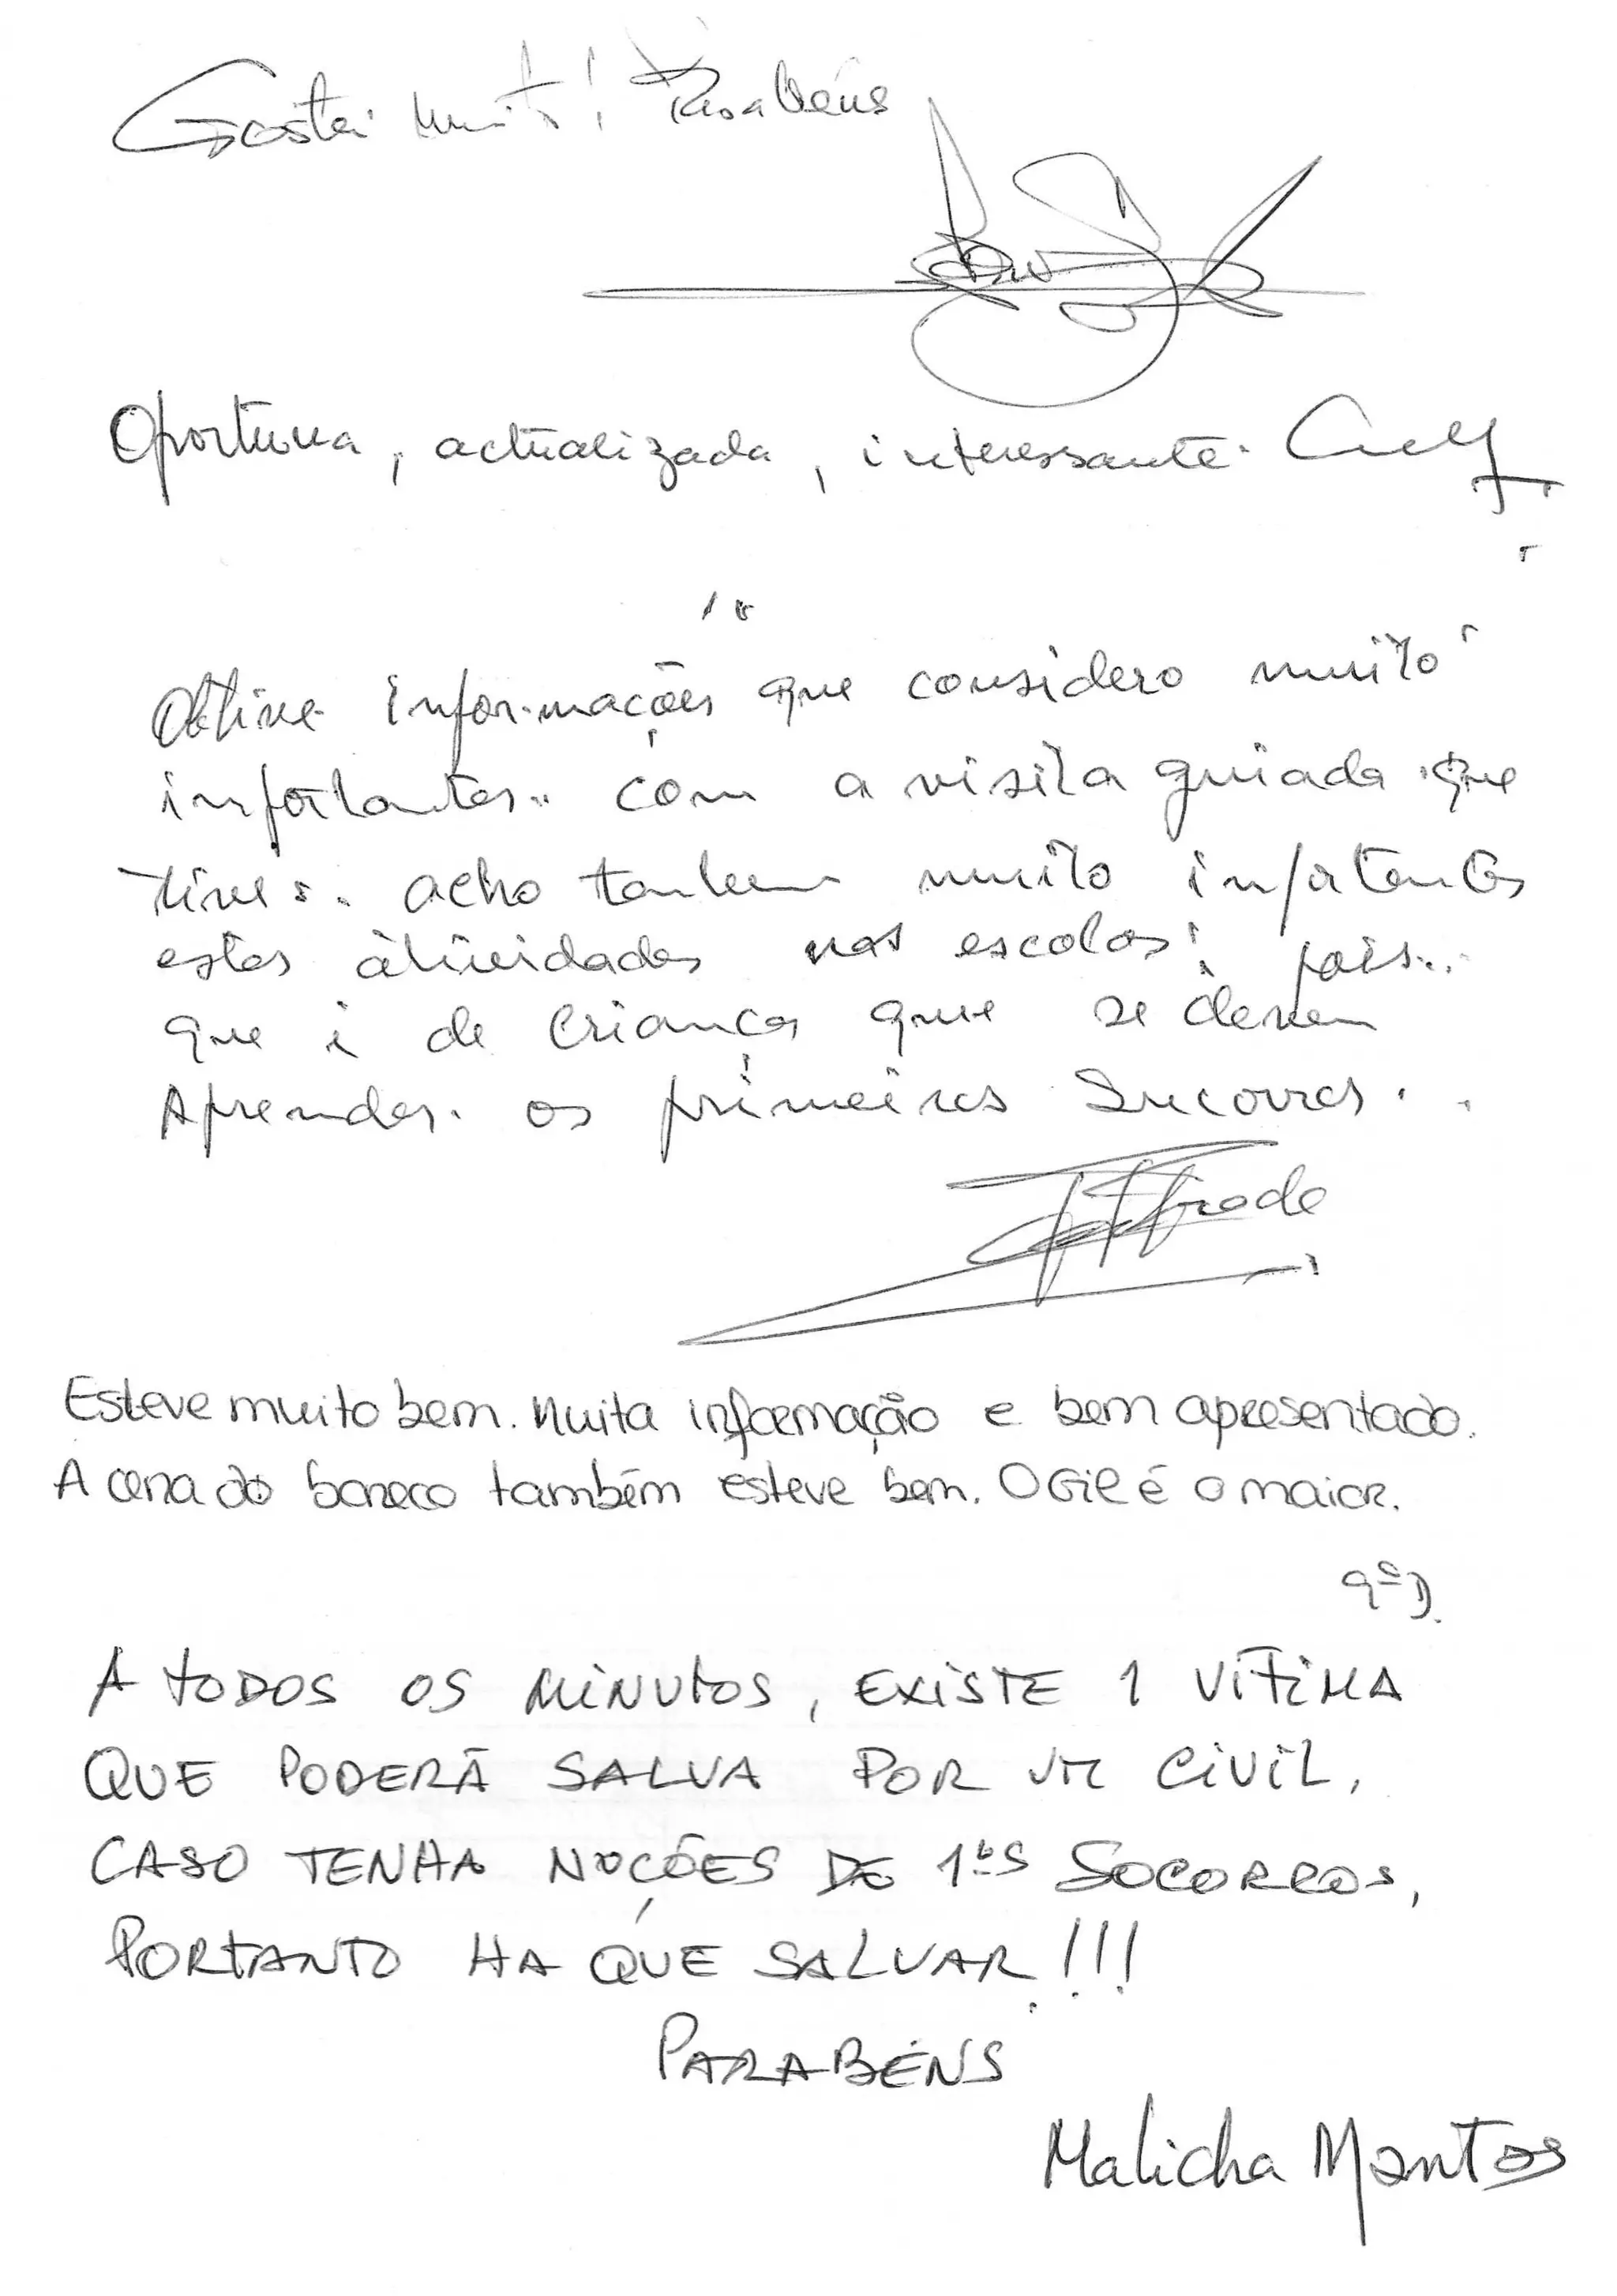 Gostei muito! Parabéns
Oportuna, actualizada, interessante.
Obtive informações que considero muito
inportantes.. com a visita guiada que
tive.. acho tanbem muito inportantes
estas atividades nas escolas; pois..
que é de criança que se devem
Aprender. os primeiros Sucorros..
Esteve muito bem. Muita informação e bem apresentado.
A cena do boneco também esteve bem. O Gil é o maior.
9ºD.
A TODOS OS MINUTOS, EXISTE 1 VÍTIMA
QUE PODERÁ SALVA POR UM CIVIL,
CASO TENHA NOÇÕES DE 1ºS SOCORROS,
PORTANTO HA QUE SALVAR!!!
PARABÉNS
Malicha Mantos